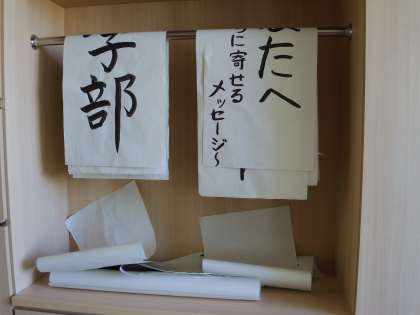 部
たへ
に寄せる
メッセージ～